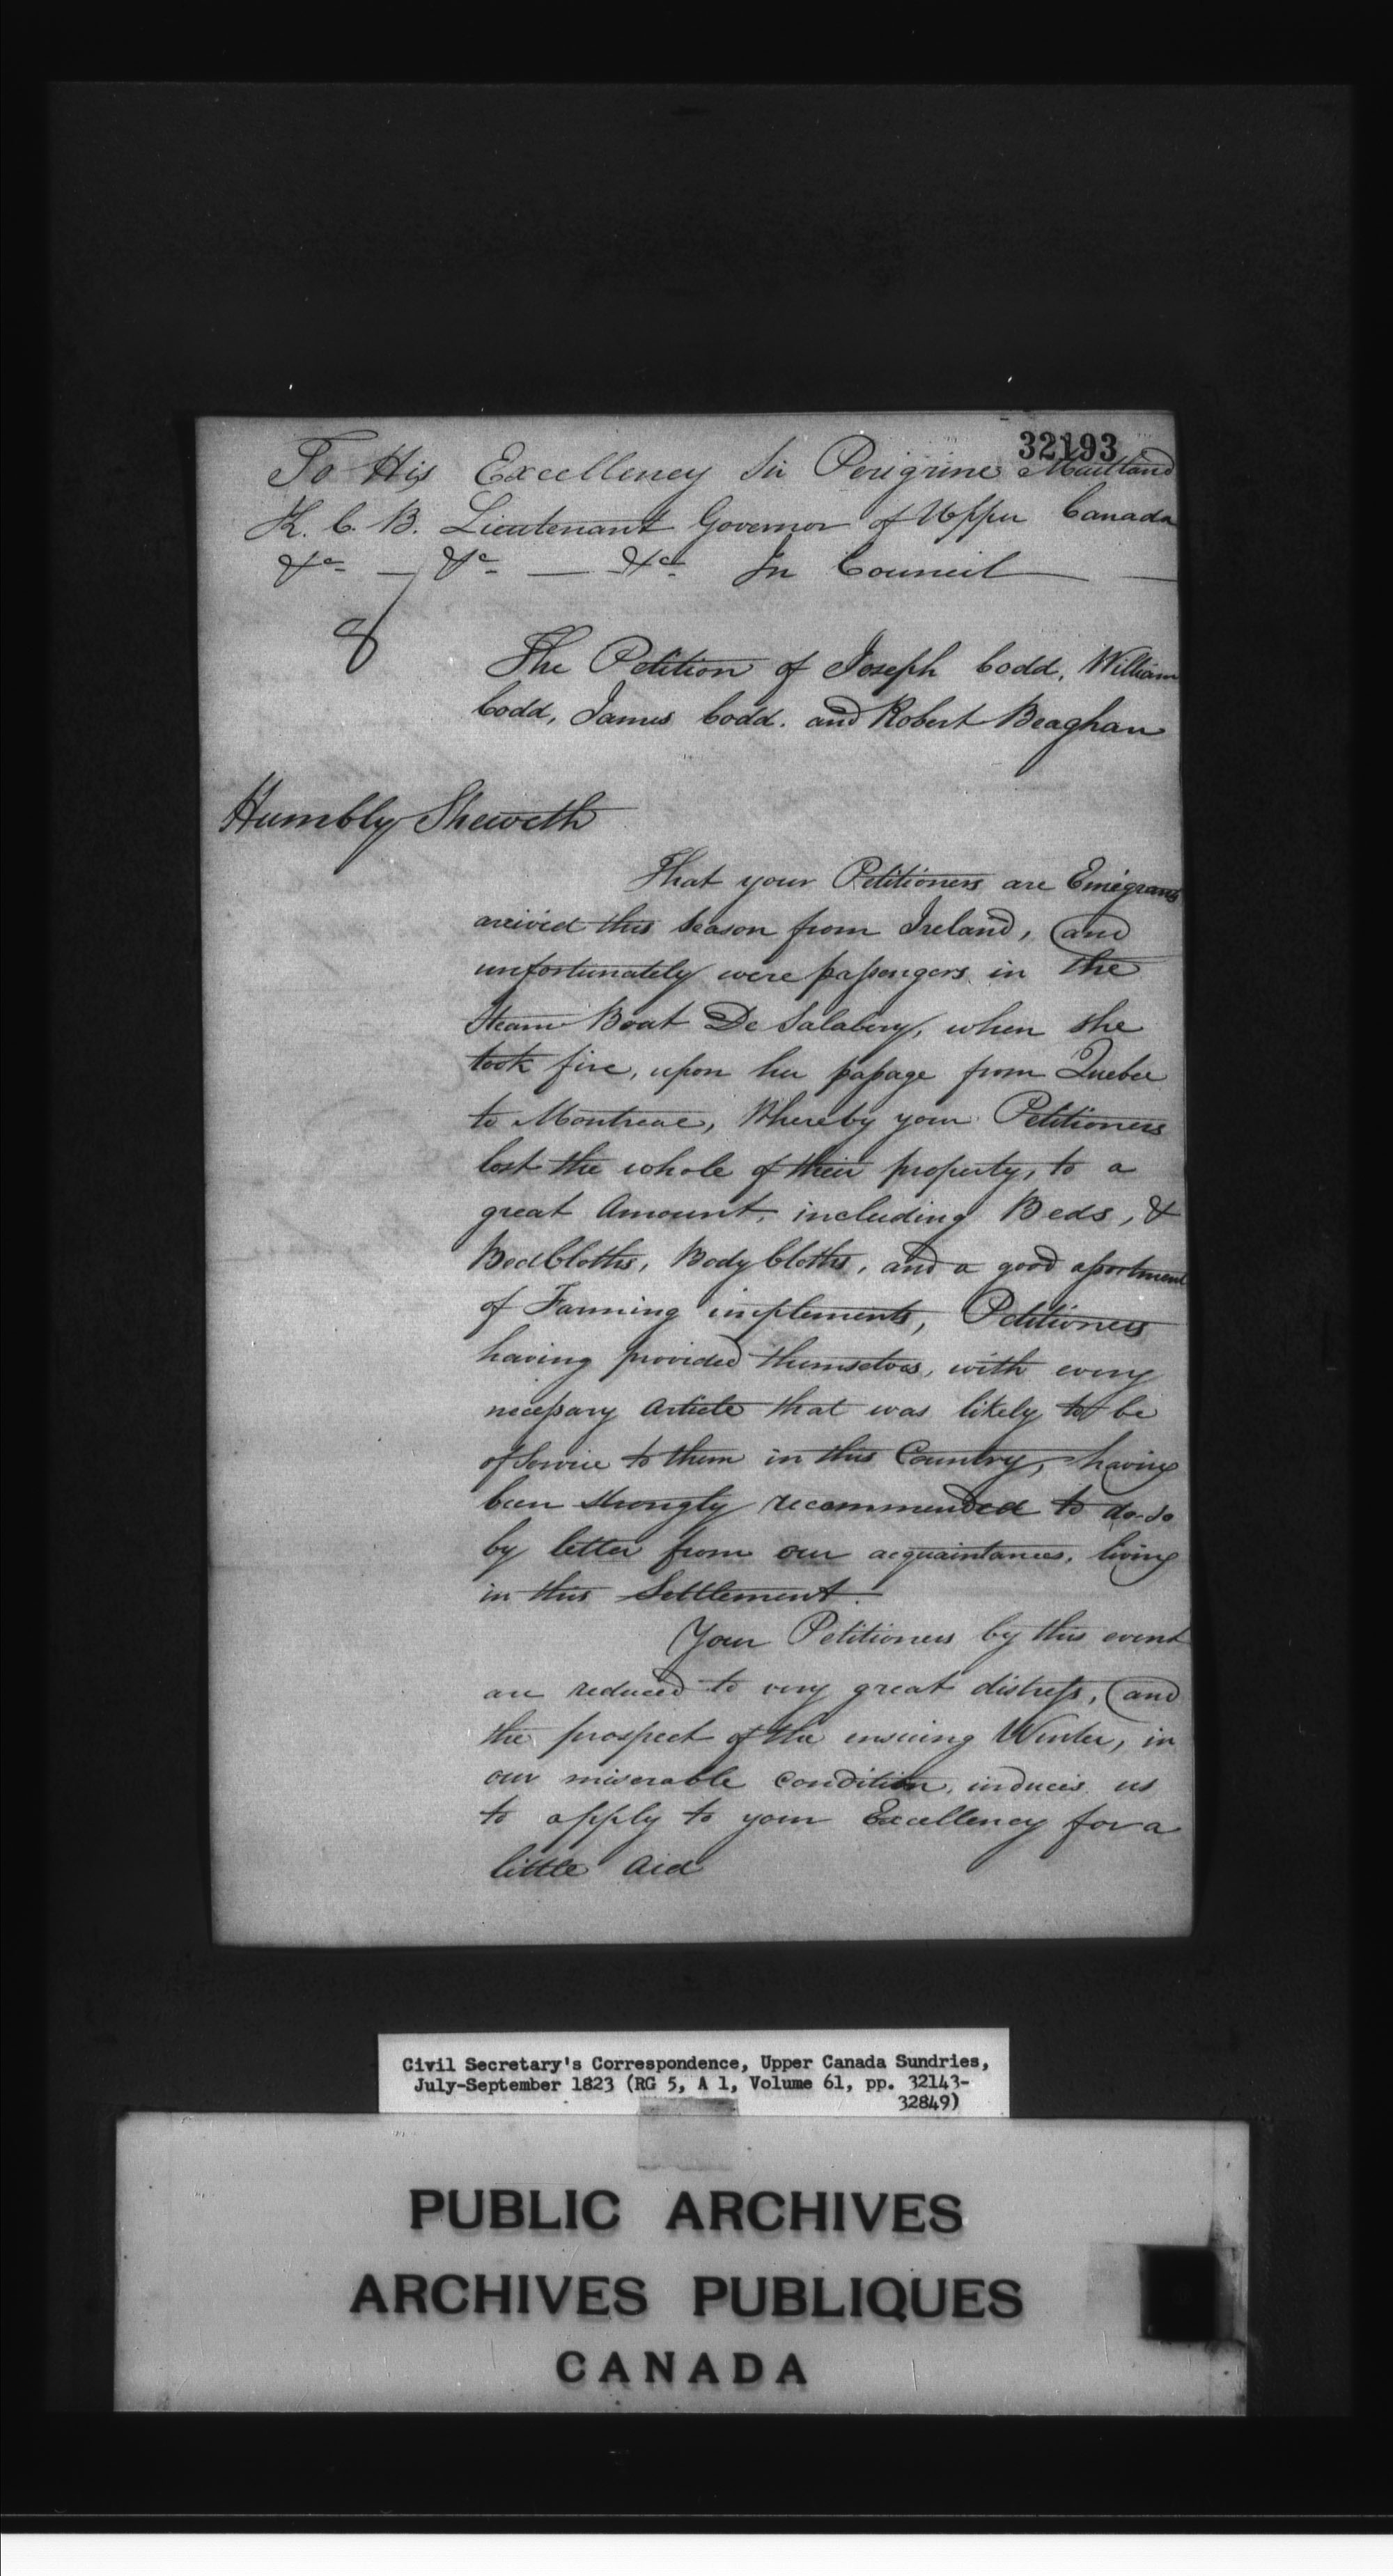 32193
To His Excellency Sir Peregrine Maitland
K. C. B. Lieutenant Governor of Upper Canada
&c — &c — &c In Council —
8
The Petition of Joseph Codd, William
Codd, James Codd. and Robert Beaghan
Humbly Sheweth
That your Petitioners are Emigrants
arrived this Season from Ireland, and
unfortunately were passengers in the
Steam Boat De Salabery, when she
took fire, upon her passage from Quebec
to Montreal, Whereby your Petitioners
lost the whole of their property, to a
great Amount, including Beds, &
BedCloths, Body Cloths, and a good assortment
of Farming implements, Petitioners
having provided themselves, with every
necessary Article that was likely to be
of Service to them in this Country, having
been strongly recommended to do so
by letter from our acquaintances, living
in this Settlement.
Your Petitioners by this event
are reduced to very great distress, and
the prospect of the ensuing Winter, in
our miserable Condition, induces us
to apply to your Excellency for a
little Aid
Civil Secretary's Correspondence, Upper Canada Sundries,
July-September 1823 (RG 5, A 1, Volume 61, pp. 32143-
32849)
PUBLIC ARCHIVES
ARCHIVES PUBLIQUES
CANADA